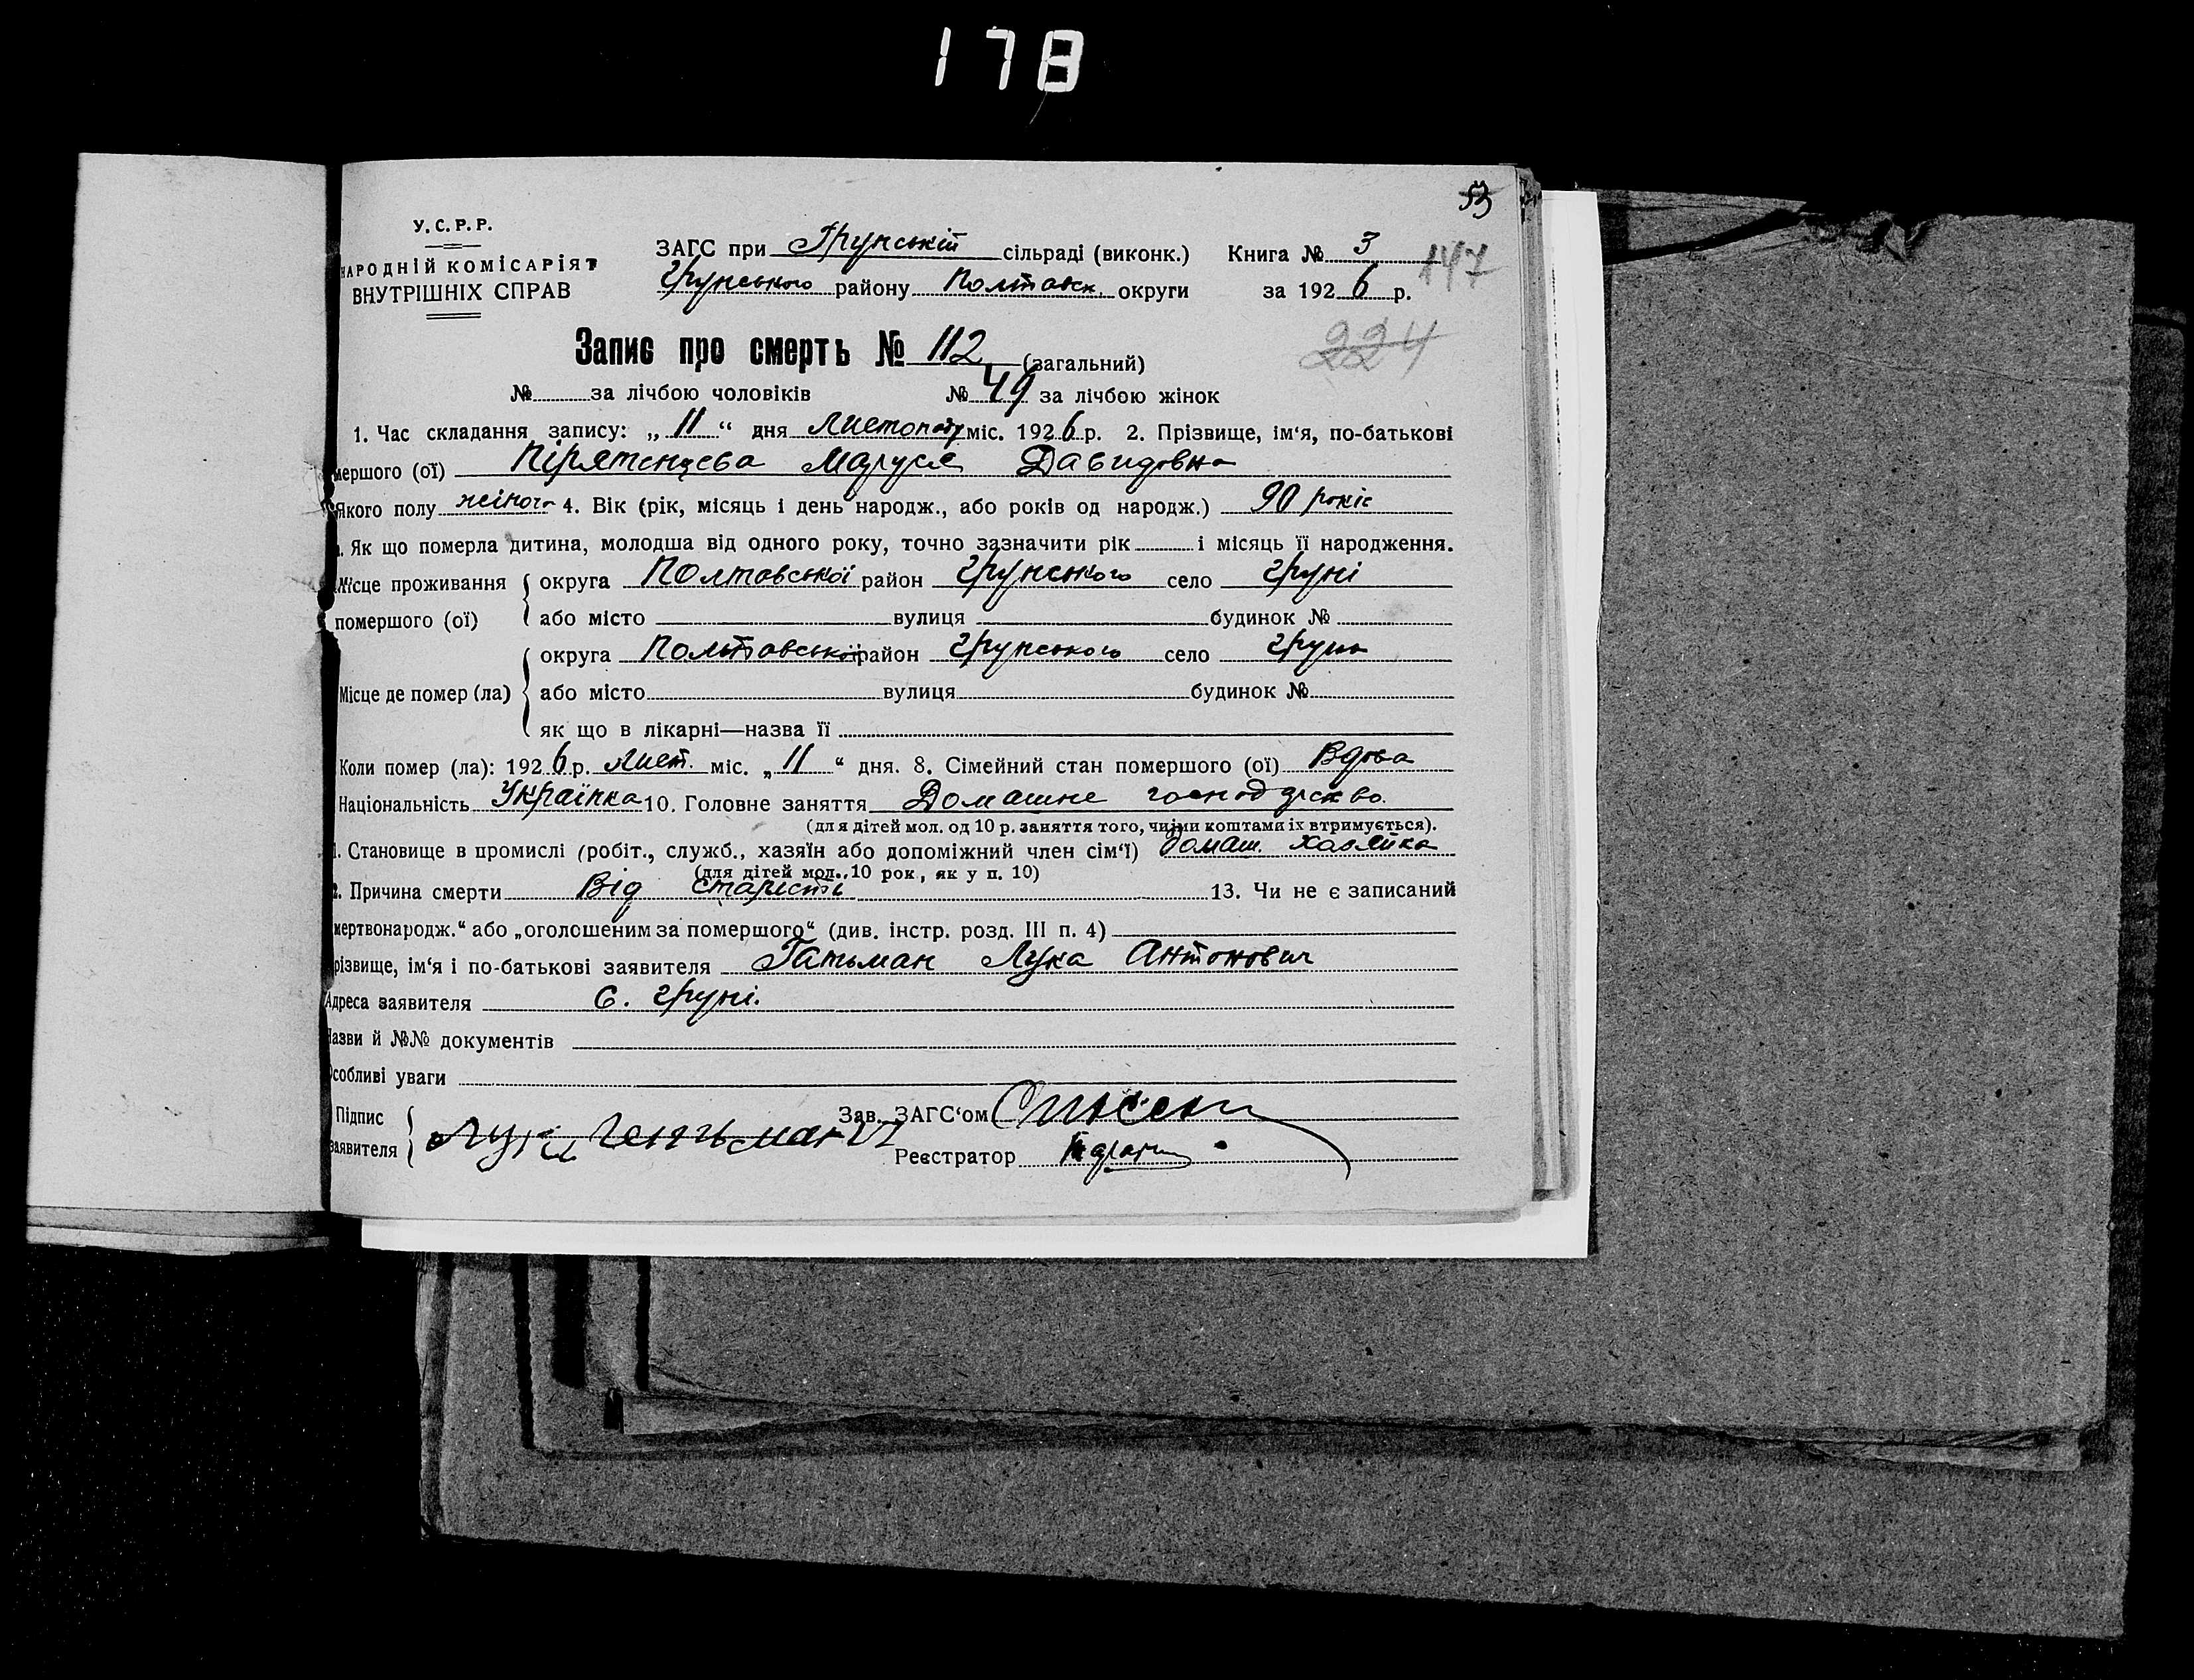 178
53
У.С.Р.Р.
НАРОДНІЙ КОМІСАРІЯТ
ВНУТРІШНІХ СПРАВ
ЗАГС при Грунській сільраді (виконк.) Книга № 3
147
Грунського району Полтавск. округи за 1926 р.
Запис про смерть № 112 (загальний)
224
№ за лічбою чоловіків № 49 за лічбою жінок
1. Час складання запису: „11“ дня Листопаду міс. 1926 р. 2. Прізвище, ім‘я, по-батькові
мершого (ої) Пірятенцева Маруся Давидовна
Якого полу жіночо 4. Вік (рік, місяць і день народж., або років од народж.) 90 років
. Як що померла дитина, молодша від одного року, точно зазначити рік і місяць її народження.
Місце проживання округа Полтавської район Грунського село Груні
помершого (ої) або місто вулиця будинок №
округа Полтавської район Грунського село Грунь
Місце де помер (ла) або місто вулиця будинок №
як що в лікарні—назва її
Коли помер (ла): 1926 р. Лист. міс. „11“ дня. 8. Сімейний стан помершого (ої) Вдова
Національність Українка 10. Головне заняття Домашнє господарство.
(для дітей мол. од 10 р. заняття того, чиїми коштами їх втримується).
1. Становище в промислі (робіт., служб., хазяїн або допоміжний член сім‘ї) домаш. хазяйка
(для дітей мол. 10 рок, як у п. 10)
2. Причина смерти Від старисти 13. Чи не є записаний
мертвонародж.“ або „оголошеним за помершого“ (див. інстр. розд. III п. 4)
різвище, ім‘я і по-батькові заявителя Гатьман Лука Антонович
Адреса заявителя С. Груні.
Назви й №№ документів
Особливі уваги
Підпис Зав. ЗАГС‘ом
заявителя Реєстратор